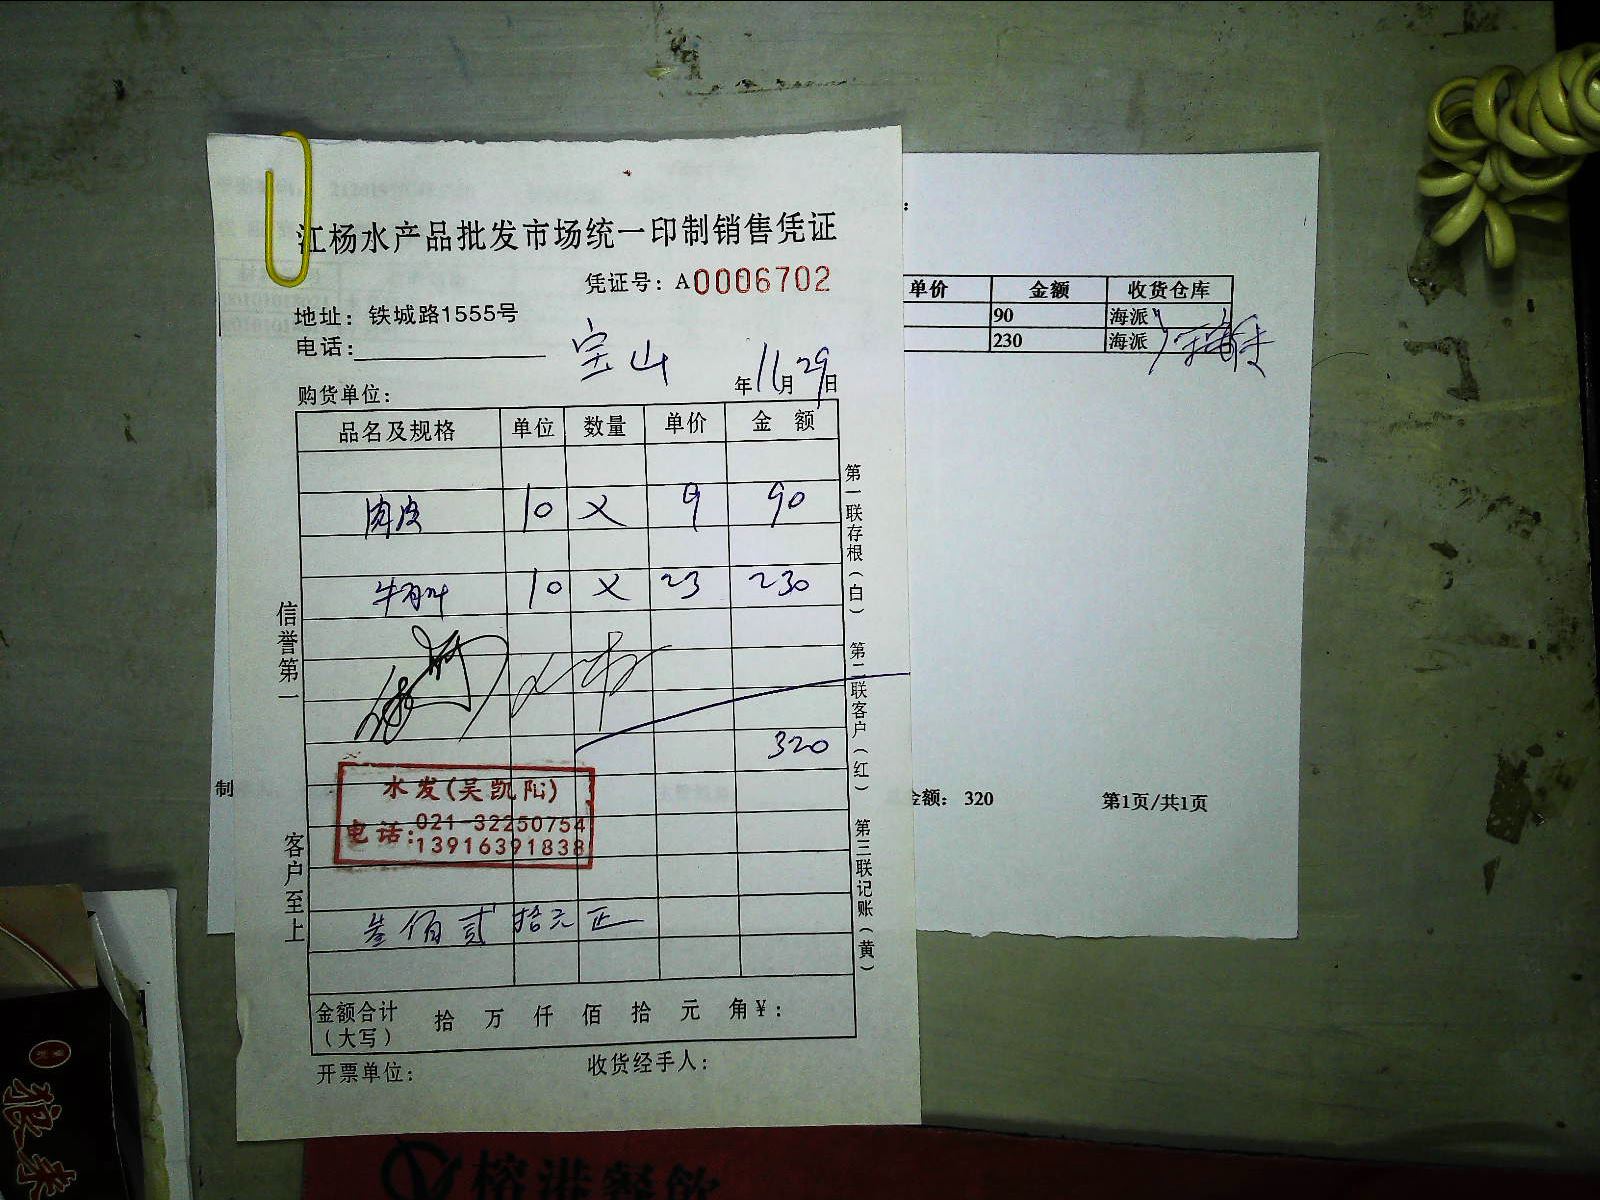 江杨水产品批发市场统一印制销售凭证
凭证号：A0006702
地址：铁城路1555号
电话：
宝山
购货单位：
年11月29日
品名及规格 单位 数量 单价 金 额
肉皮 10 × 9 90
牛 10 × 23 230
320
水发(吴凯阳)
电话：021-32250754
13916391838
叁佰贰拾元正
金额合计
(大写) 拾 万 仟 佰 拾 元 角 ¥：
开票单位： 收货经手人：
信誉第一
客户至上
第一联存根(白)
第二联客户(红)
第三联记账(黄)
：
单价 金额 收货仓库
90 海派
230 海派
制
金额： 320
第1页/共1页
榕港餐饮